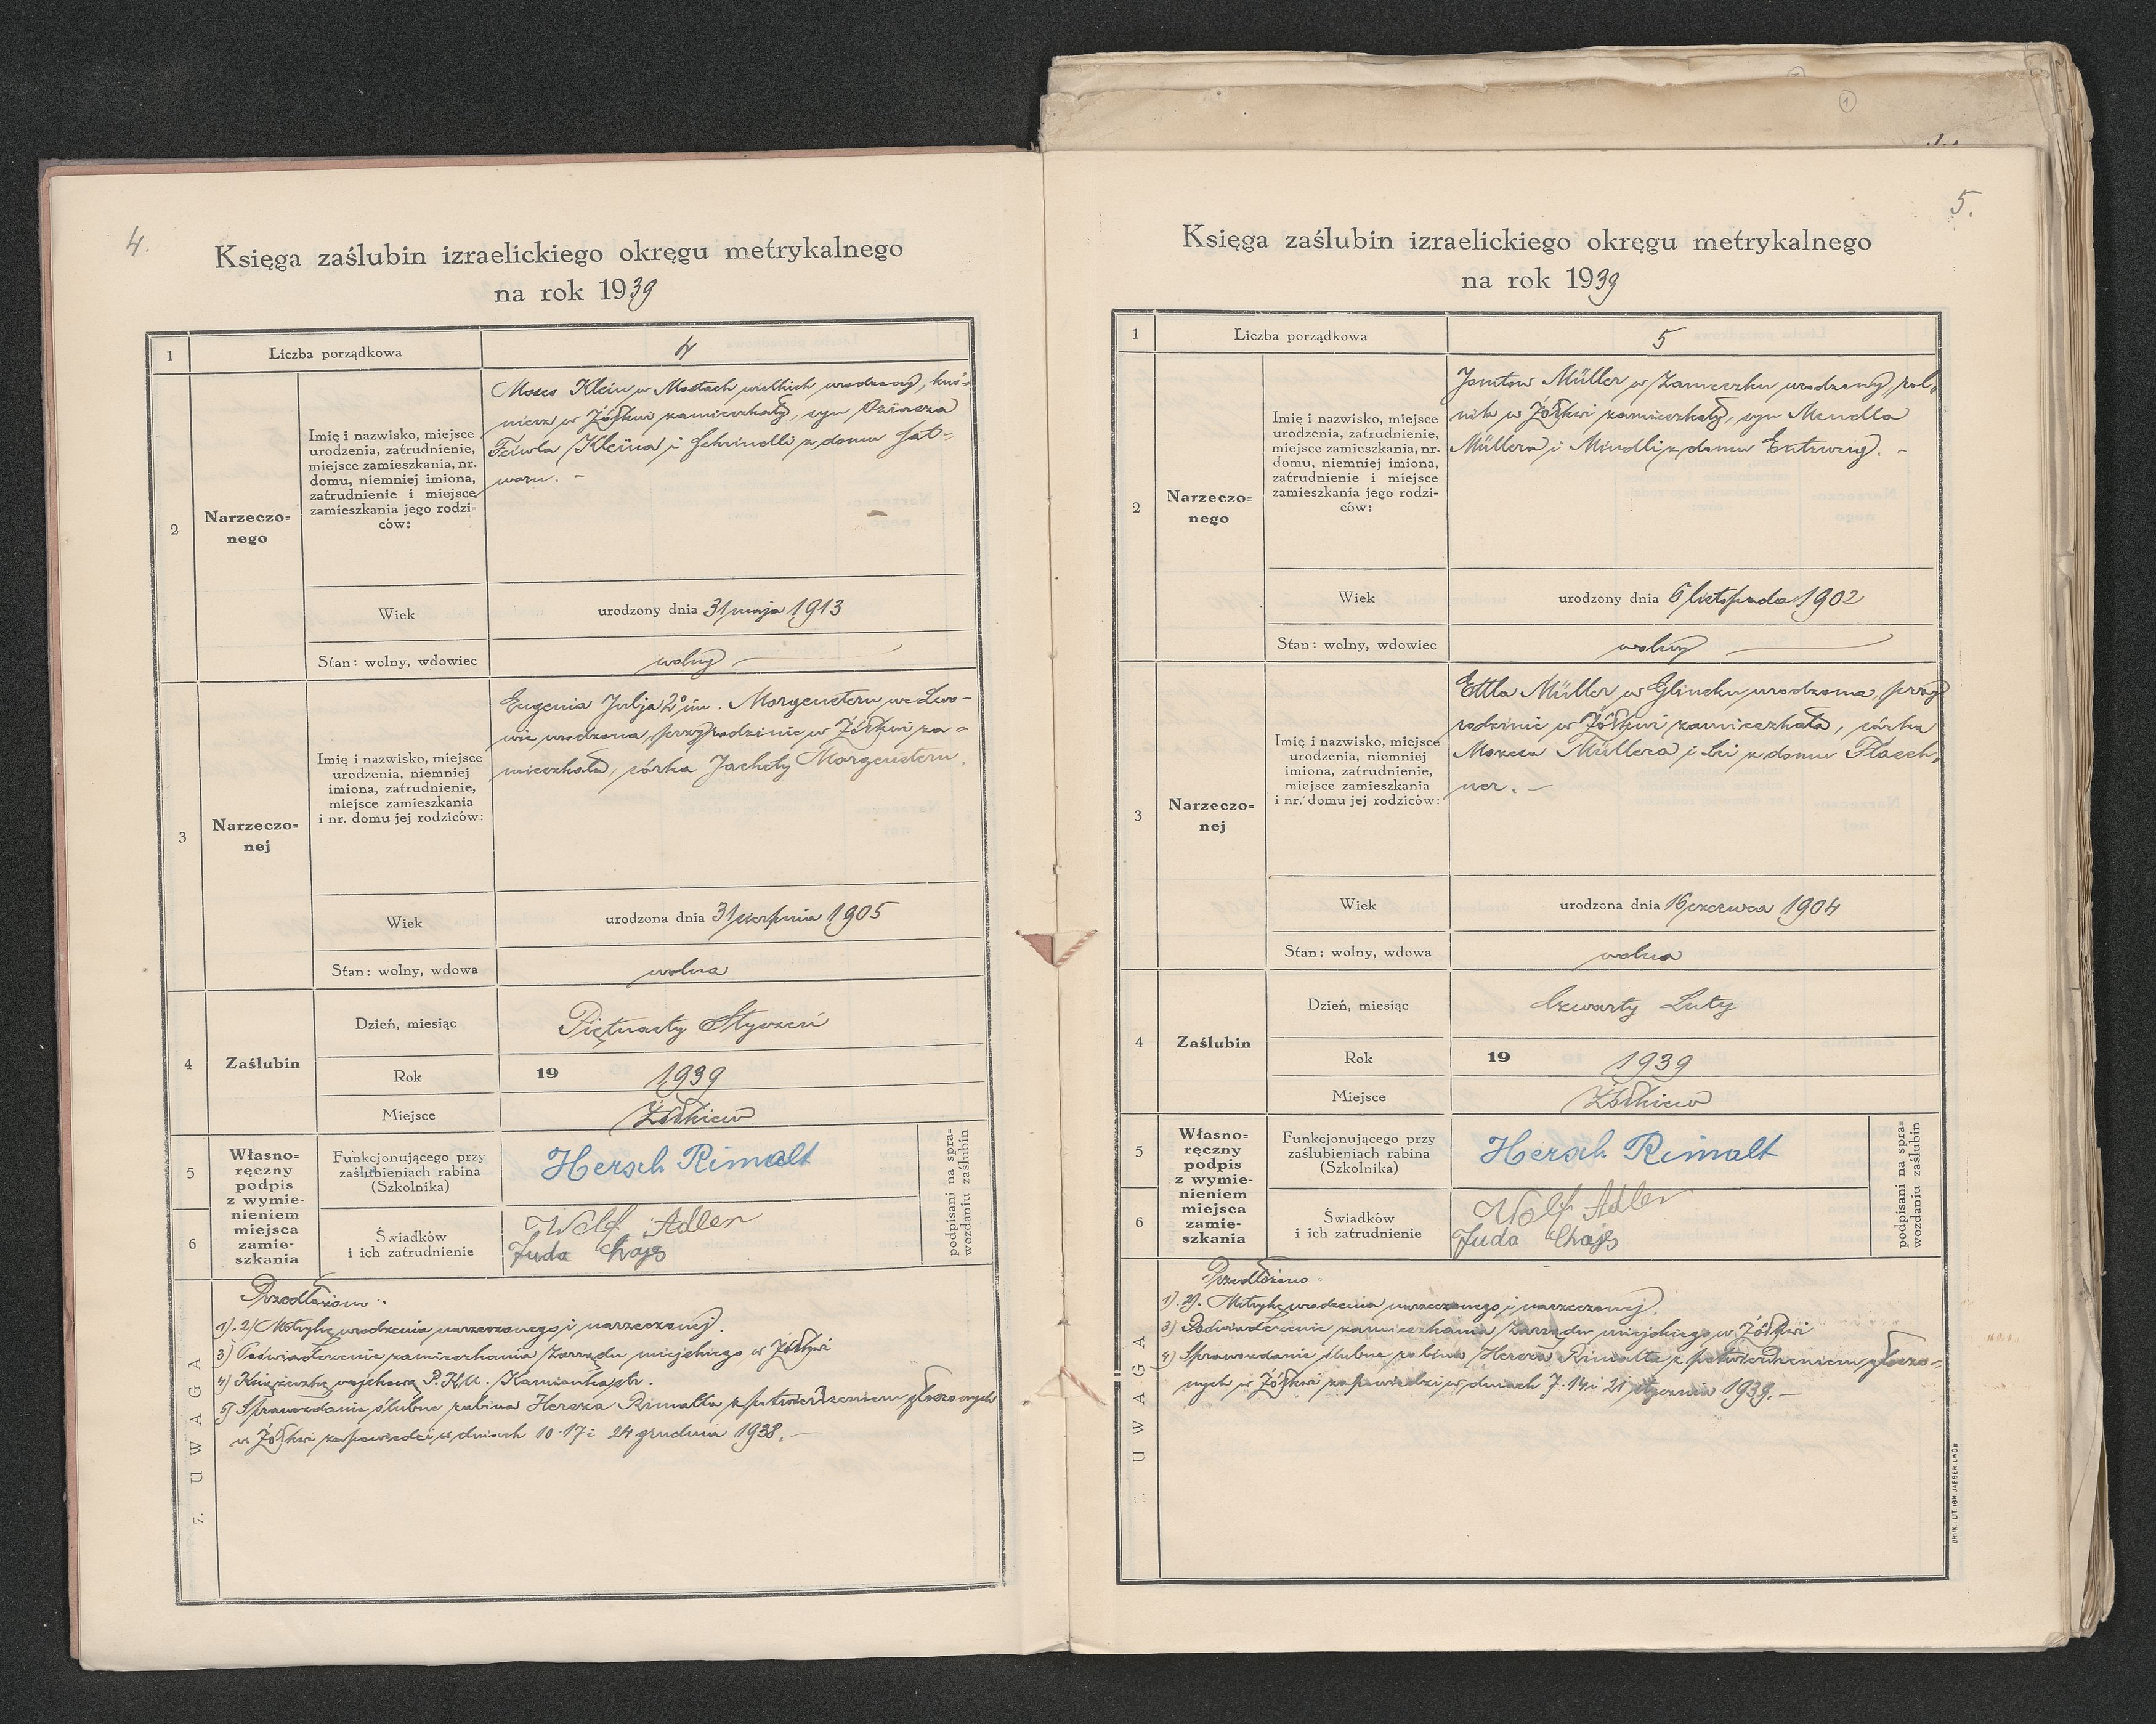 4.
Księga zaślubin izraelickiego okręgu metrykalnego
na rok 1939
1
Liczba porządkowa
4
2
Narzeczo=
nego
Imię i nazwisko, miejsce
urodzenia, zatrudnienie,
miejsce zamieszkania, nr.
domu, niemniej imiona,
zatrudnienie i miejsce
zamieszkania jego rodzi=
ców:
Moses Klein w Mostach wielkich urodzony, kuś=
nierz w Żółkwi zamieszkały, syn Oziasza
Feiwla Kleina i Schrindli z domu Sat=
warn. –
Wiek
urodzony dnia 31 maja 1913
Stan: wolny, wdowiec
wolny
3
Narzeczo=
nej
Imię i nazwisko, miejsce
urodzenia, niemniej
imiona, zatrudnienie,
miejsce zamieszkania
i nr. domu jej rodziców:
Eugenia Julja 2º im. Morgenstern we Lwo-
wie urodzona, przy rodzinie w Żółkwi za=
mieszkała, córka Jachety Morgenstern.
Wiek
urodzona dnia 31 sierpnia 1905
Stan: wolny, wdowa
wolna
4
Zaślubin
Dzień, miesiąc
Piętnasty Styczeń
Rok
19 1939
Miejsce
Żółkiew
5
6
Własno=
ręczny
podpis
z wymie-
nieniem
miejsca
zamie-
szkania
Funkcjonującego przy
zaślubieniach rabina
(Szkolnika)
Hersch Rimalt
Świadków
i ich zatrudnienie
Wolf Adler
Juda Chajes
podpisani na spra=
wozdaniu zaślubin
7. UWAGA
Przedłożono:
1). 2) Metrykę urodzenia narzeczonego i narzeczonej.
3) Poświadczenie zamieszkania Zarządu miejskiego w Żółkwi
4) Książeczkę wojskową P.K.U. Kamionka str.
5) Sprawozdanie ślubne rabina Hersza Rimalta z potwierdzeniem głoszonych
w Żółkwi zapowiedzi w dniach 10. 17 i 24 grudnia 1938. –
5.
Księga zaślubin izraelickiego okręgu metrykalnego
na rok 1939
1
Liczba porządkowa
5
2
Narzeczo=
nego
Imię i nazwisko, miejsce
urodzenia, zatrudnienie,
miejsce zamieszkania, nr.
domu, niemniej imiona,
zatrudnienie i miejsce
zamieszkania jego rodzi=
ców:
Jomtow Müller w Zameczku urodzony, rol=
nik w Żółkwi zamieszkały, syn Mendla
Müllera i Mindli z domu Entzweig. –
Wiek
urodzony dnia 6 listopada 1902
Stan: wolny, wdowiec
wolny
3
Narzeczo=
nej
Imię i nazwisko, miejsce
urodzenia, niemniej
imiona, zatrudnienie,
miejsce zamieszkania
i nr. domu jej rodziców:
Ettla Müller w Glinsku urodzona, przy
rodzinie w Żółkwi zamieszkała, córka
Mozesa Müllera i Lei z domu Flasch=
ner. –
Wiek
urodzona dnia 16 czerwca 1904
Stan: wolny, wdowa
wolna
4
Zaślubin
Dzień, miesiąc
Czwarty Luty
Rok
19 1939
Miejsce
Żółkiew
5
6
Własno=
ręczny
podpis
z wymie-
nieniem
miejsca
zamie-
szkania
Funkcjonującego przy
zaślubieniach rabina
(Szkolnika)
Hersch Rimalt
Świadków
i ich zatrudnienie
Wolf Adler
Juda Chajes
podpisani na spra=
wozdaniu zaślubin
7. UWAGA
Przedłożono:
1). 2). Metrykę urodzenia narzeczonego i narzeczonej.
3) Poświadczenie zamieszkania Zarządu miejskiego w Żółkwi
4) Sprawozdanie ślubne rabina Hersza Rimalta z potwierdzeniem głoszo=
nych w Żółkwi zapowiedzi w dniach 7. 14 i 21 stycznia 1939. –
DRUK. I LIT. IGN. JAEGER, LWÓW
1